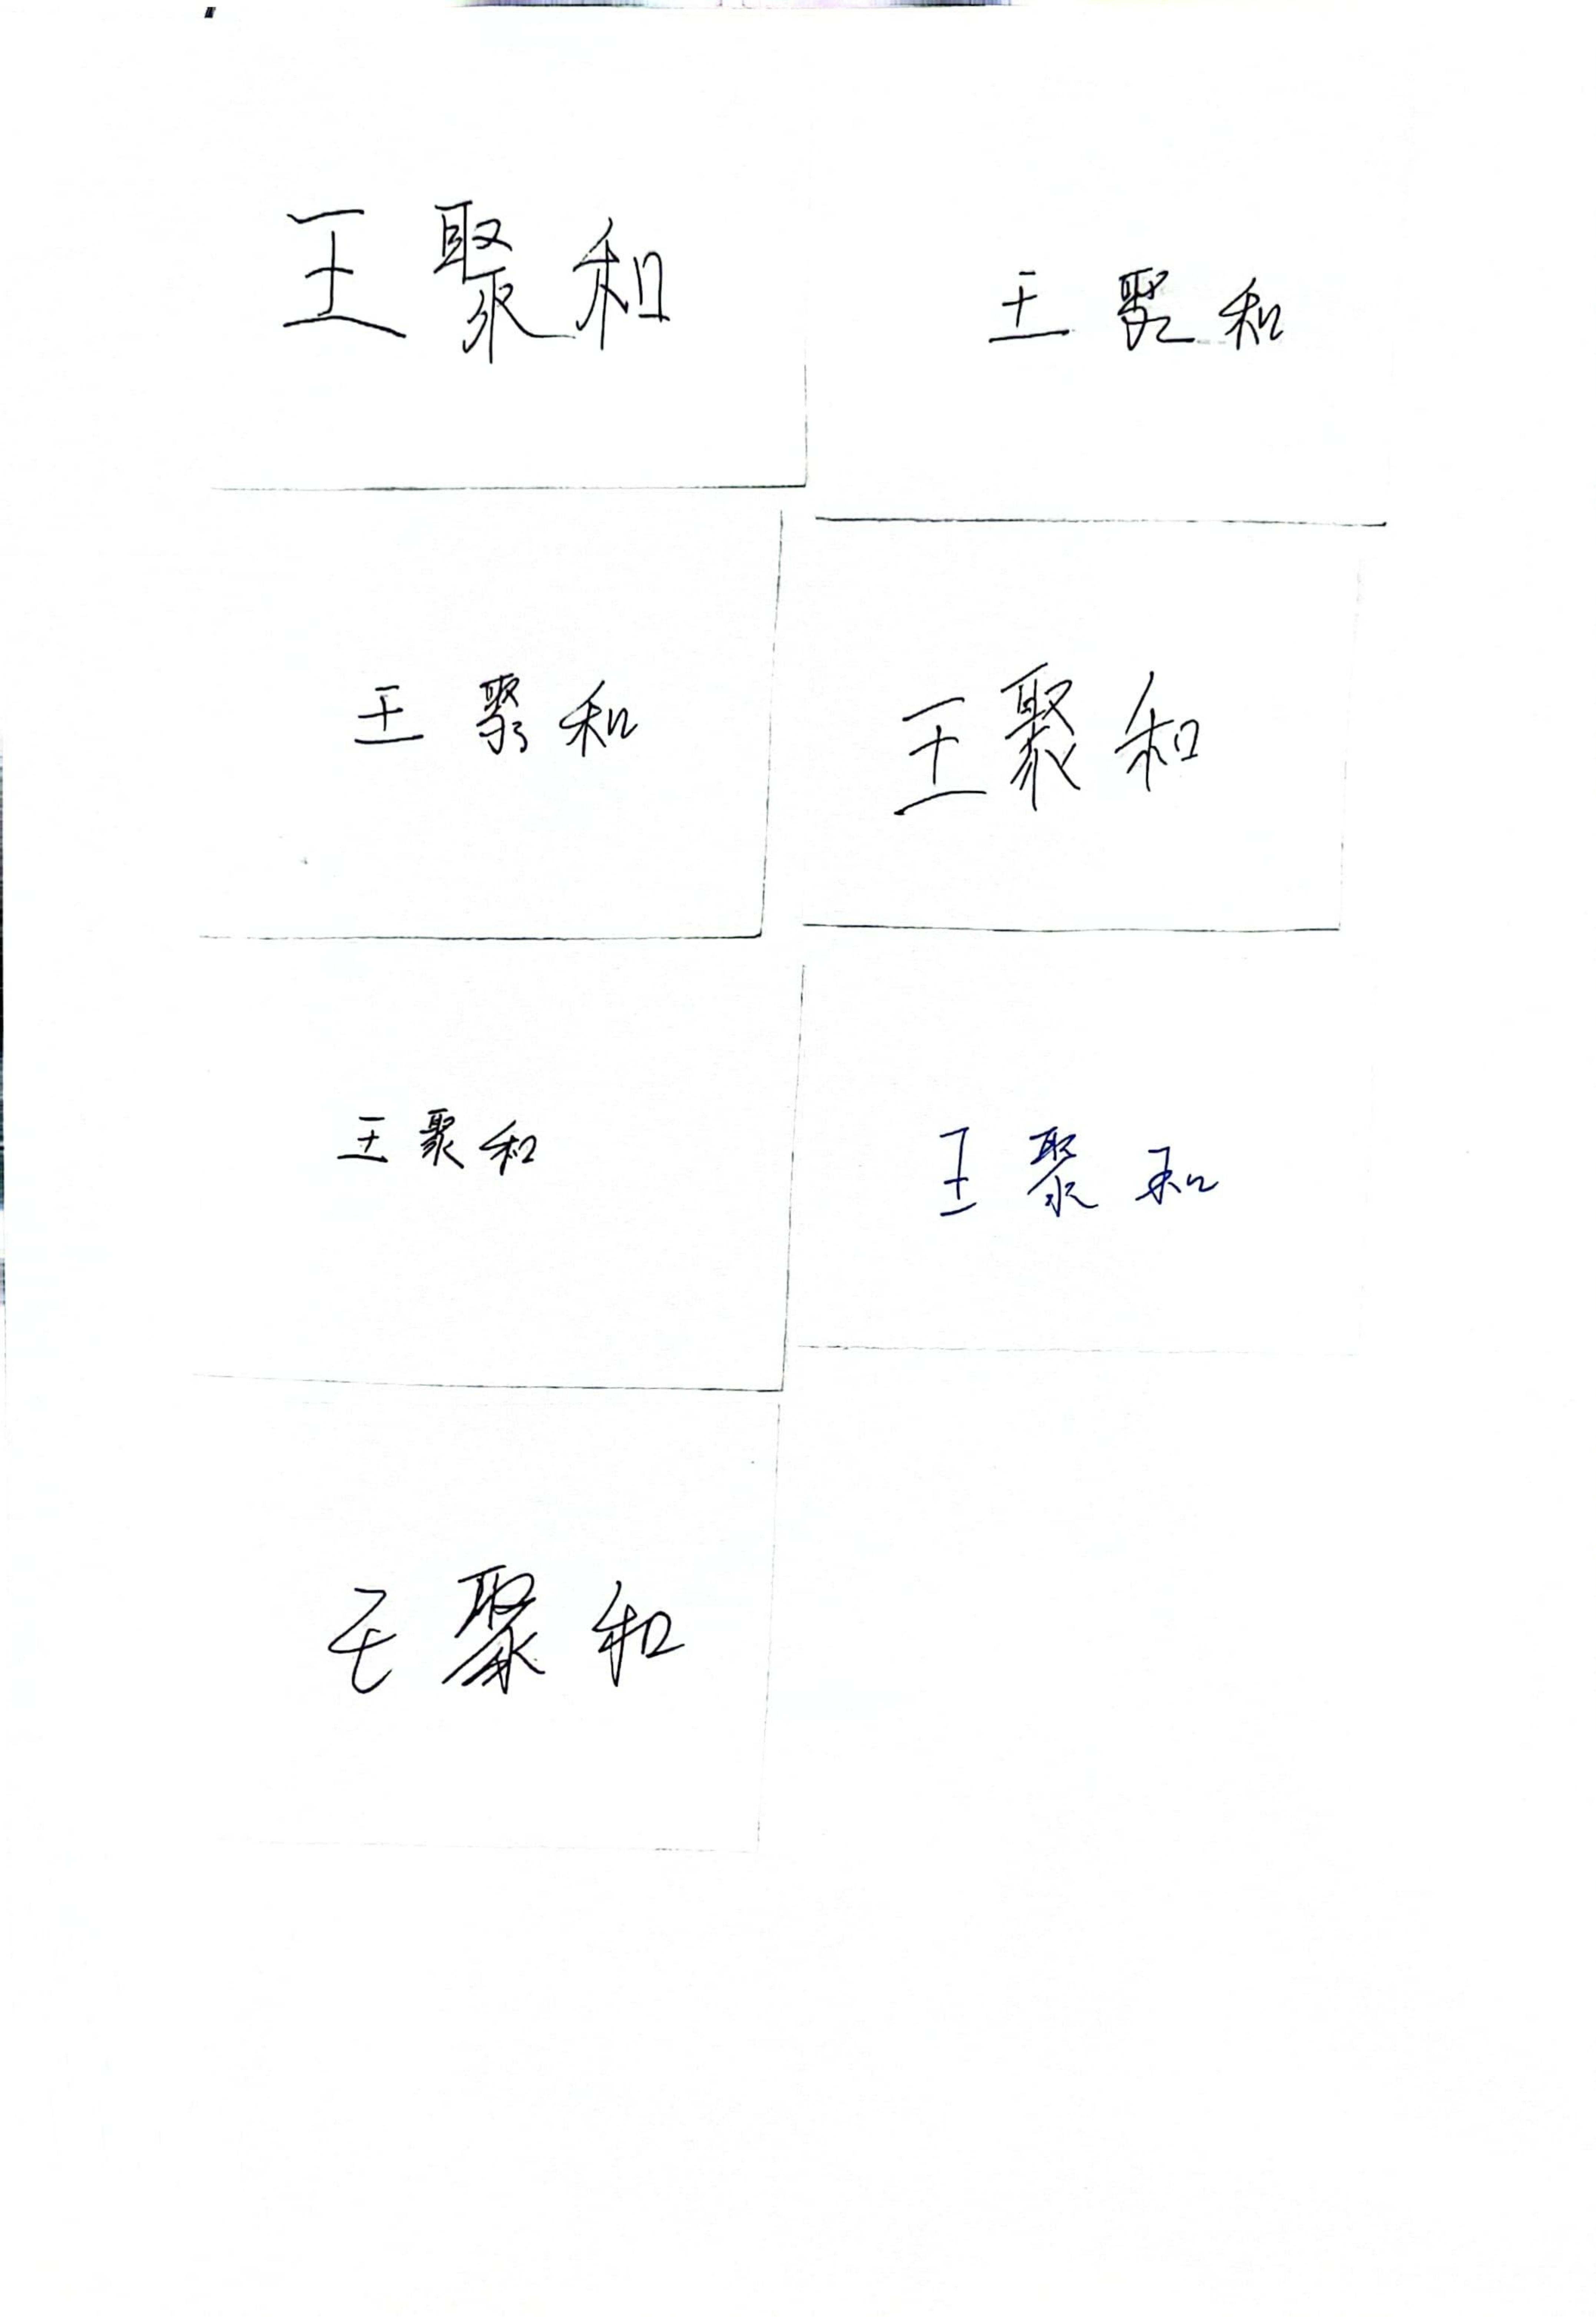 王聚和
王聚和
王聚和
王聚和
王聚和
王聚和
王聚和